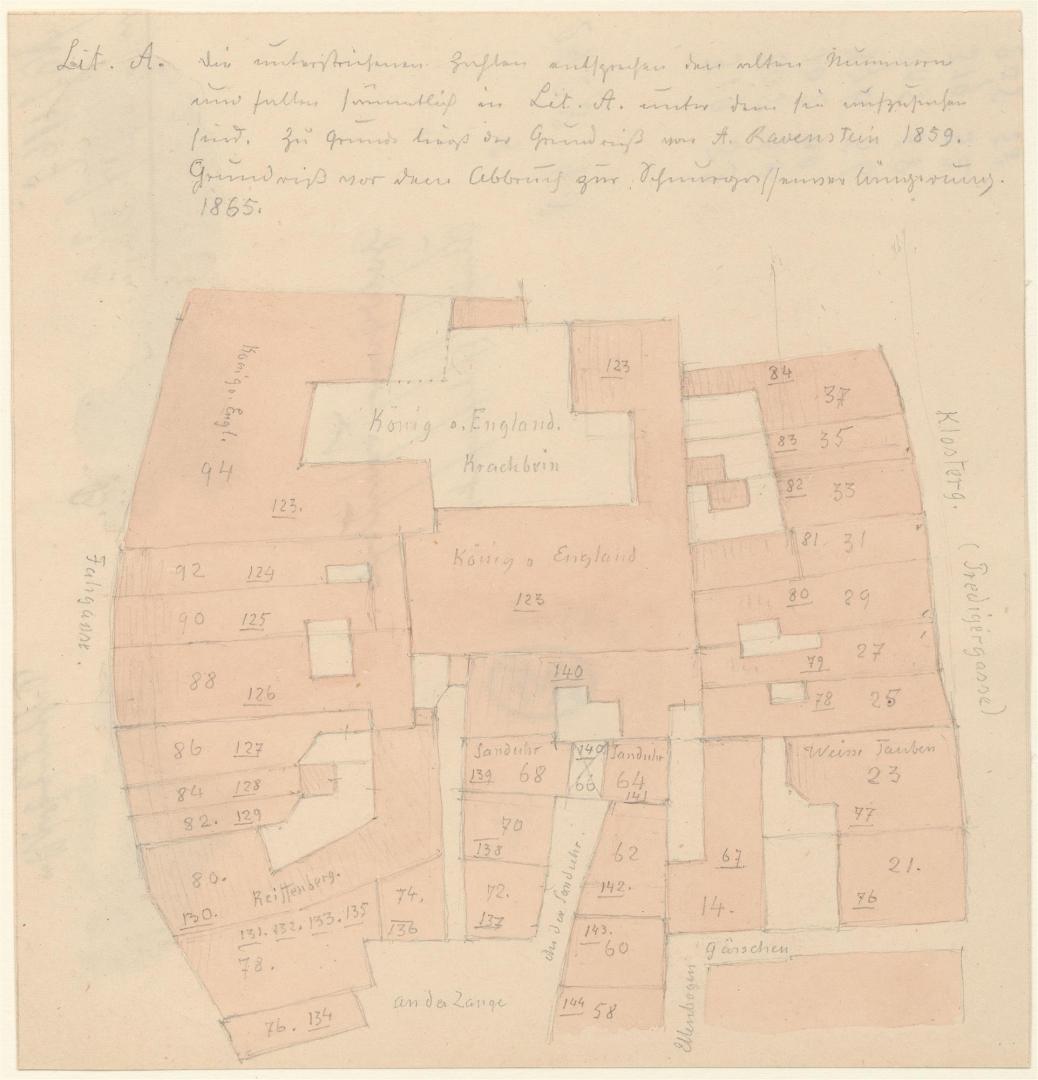 Lit. A. Die unterstrichenen Zahlen entsprechen den alten Nummern
und fallen sämmtlich in Lit. A. unter dem sie aufzusuchen
sind. Zu Grunde liegt der Grundriß von A. Ravenstein 1859.
Grundriß vor dem Abbruch zur Schnurgassenverlängerung.
1865.
König v. Engl.
94
123.
König v. England.
Krachbein
123
84
37
83 35
82 33
81. 31
80 29
79 27
78 25
Klosterg.
(Predigergasse)
Fahrgasse.
König v England
123
92 124
90 125
88 126
86 127
84 128
82. 129
80.
130.
Reiffenberg.
131. 132. 133. 135
78.
76. 134
74.
136
140
Sanduhr
139 68
140
66
Sanduhr
64
141
70
138
72.
137
An der Sanduhr.
62
142.
143.
60
144 58
an der Zange
67
14.
Weisse Tauben
23
77
21.
76
Ellenbogen
Gässchen